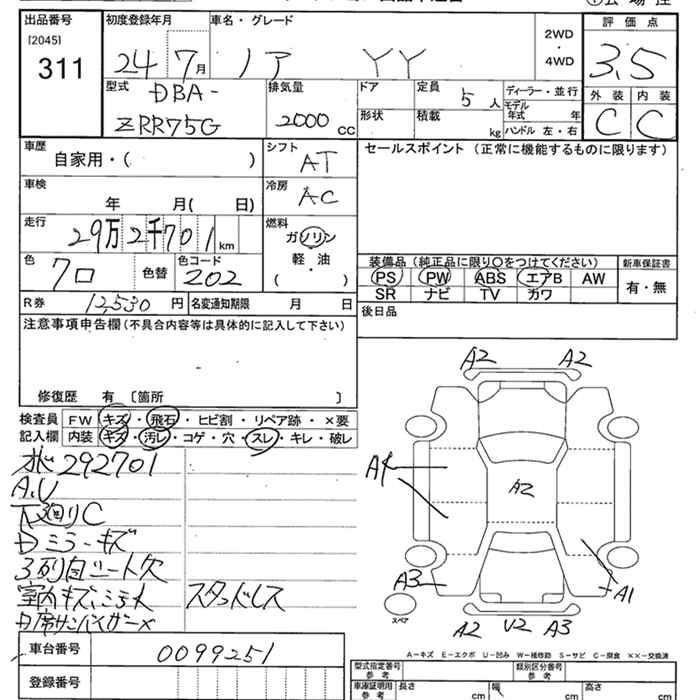 出品番号 初度登録年月 車名・グレード 2WD・4WD 評価点
[2045]
311 24 7月 ノア YY 3.5
型式 排気量 ドア 定員 ディーラー・並行 外装 内装
DBA-
ZRR75G 2000 CC 5人 モデル年式 年 C C
形状 積載 kg ハンドル 左・右
車歴 シフト セールスポイント (正常に機能するものに限ります)
自家用・( ) AT
車検 冷房
年 月( 日) AC
走行 燃料
29万2千701km ガソリン・軽油・( )
色 色替 色コード 装備品 (純正品に限り〇をつけてください) 新車保証書
クロ 202 PS PW ABS エアB AW 有・無
SR ナビ TV カワ
R券 12,530円 名変通知期限 月 日 後日品
注意事項申告欄(不具合内容等は具体的に記入して下さい)
修復歴 有 〔箇所 〕
A2 A2
検査員 FW キズ・飛石・ヒビ割・リペア跡・×要
記入欄 内装 キズ・汚レ・コゲ・穴・スレ・キレ・破レ
292701
A1
A2
A.V
下廻りC
Dミラーキズ
3列目シート欠
A3 A1
室内キズ、シミ大 スタッドレス
スペア
A2 U2 A3
A-キズ E-エクボ U-凹み W-補修跡 S-サビ C-腐食 ××-交換済
車台番号 0099251
型式指定番号 参考 類別区分番号 参考
登録番号
車庫証明用 参考 長さ cm 幅 cm 高さ cm